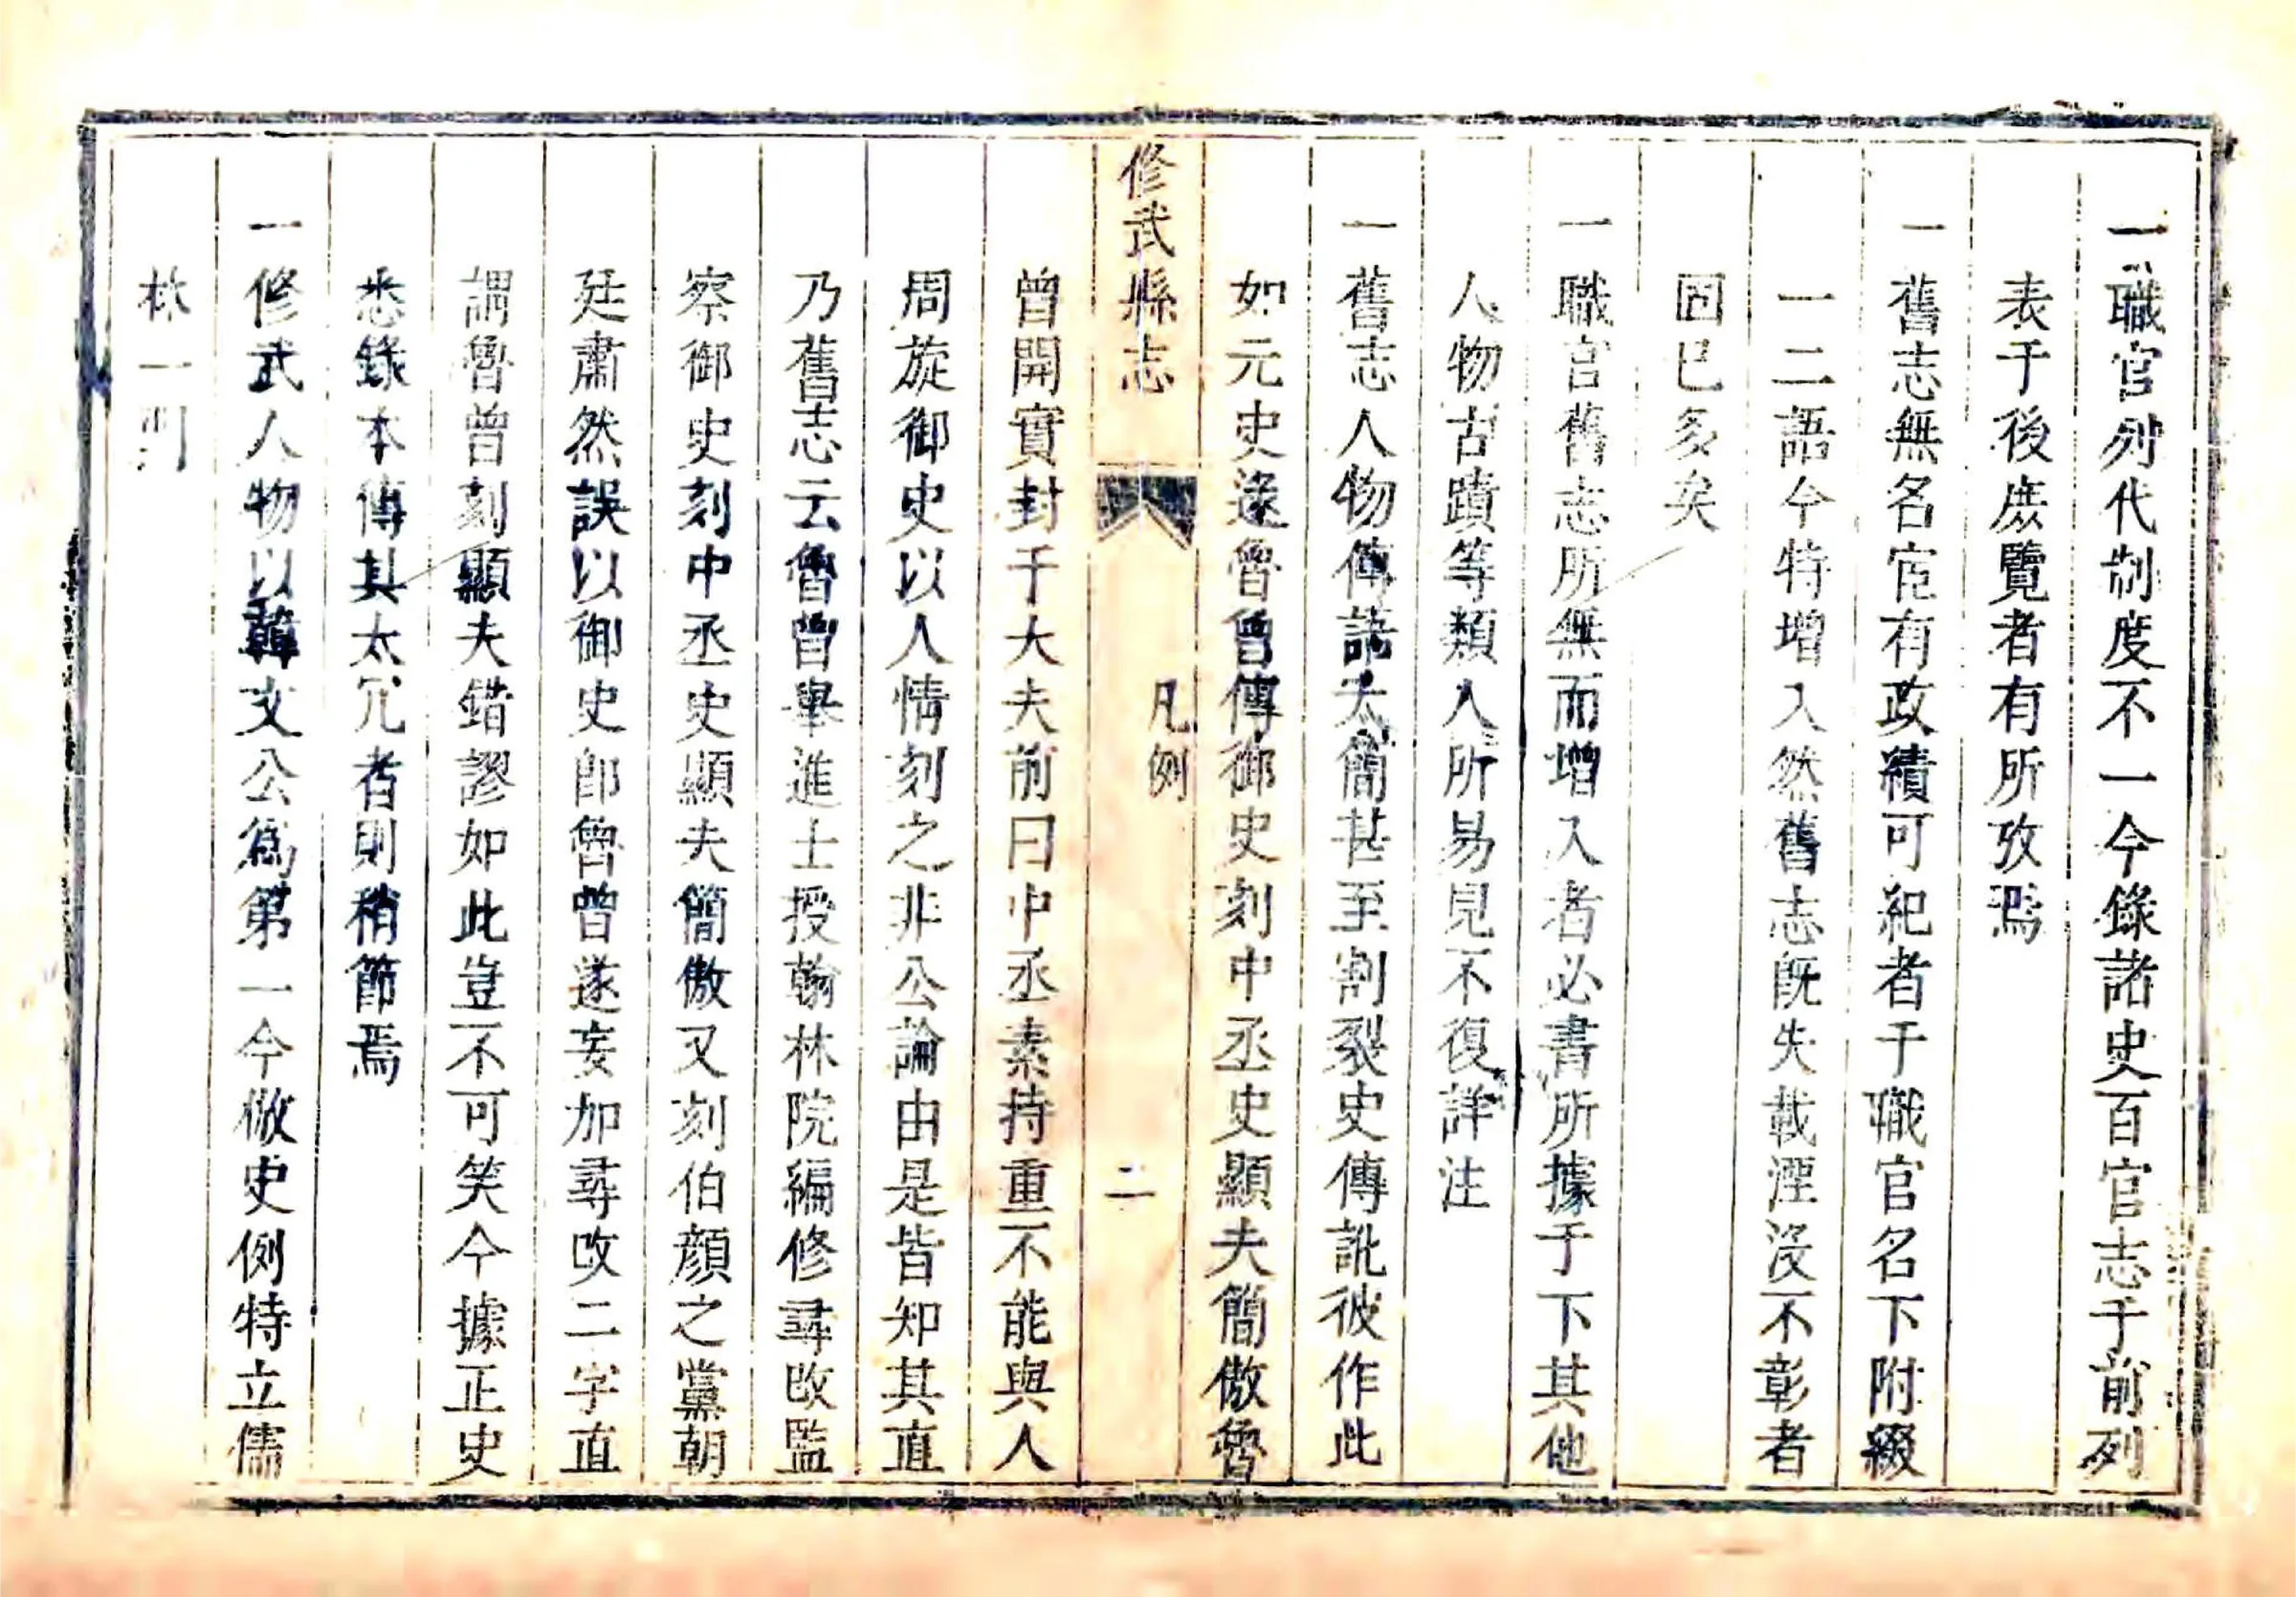 一職官列代制度不一今錄諸史百官志于前列
表于後庶覽者有所攷焉
一舊志無名宦有政績可紀者于職官名下附綴
一二語今特增入然舊志旣失載湮没不彰者
固已多矣
一職官舊志所無而增入者必書所據于下其他
人物古蹟等類人所易見不復詳注
一舊志人物傳語太簡甚至割裂史傳訛彼作此
如元史逯魯曾傳御史刻中丞史顯夫簡傲魯
修武縣志
凡例
二
曾開實封于大夫前曰中丞素持重不能與人
周旋御史以人情刻之非公論由是皆知其直
乃舊志云魯曾舉進士授翰林院編修尋改監
察御史刻中丞史顯夫簡傲又刻伯顔之黨朝
廷肅然誤以御史卽魯曾遂妄加尋改二字直
謂魯曾刻顯夫錯謬如此豈不可笑今據正史
悉錄本傳其太冗者則稍節焉
一修武人物以韓文公爲第一今倣史例特立儒
林一門